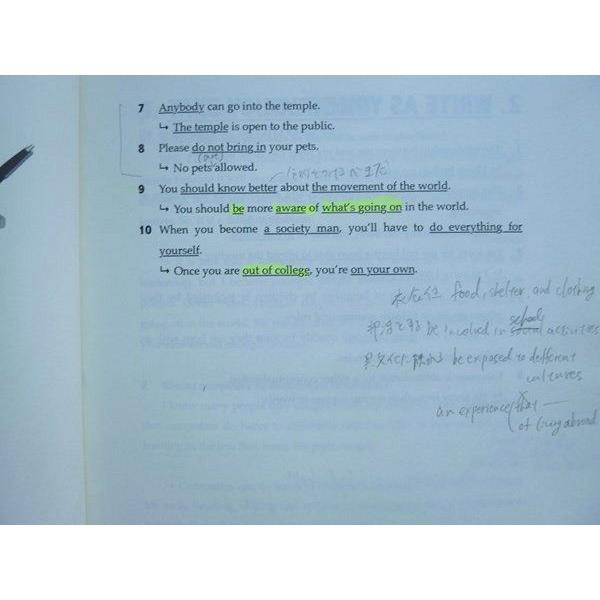 7 Anybody can go into the temple.
↳ The temple is open to the public.
8 Please do not bring in your pets.
(are)
↳ No pets allowed.
9 You should know better about the movement of the world.
↳ You should be more aware of what's going on in the world.
10 When you become a society man, you'll have to do everything for
yourself.
↳ Once you are out of college, you're on your own.
衣食住 food, shelter, and clothing
school
be involved in social activities
be exposed to defferent
cultures
an experience that —
of living abroad